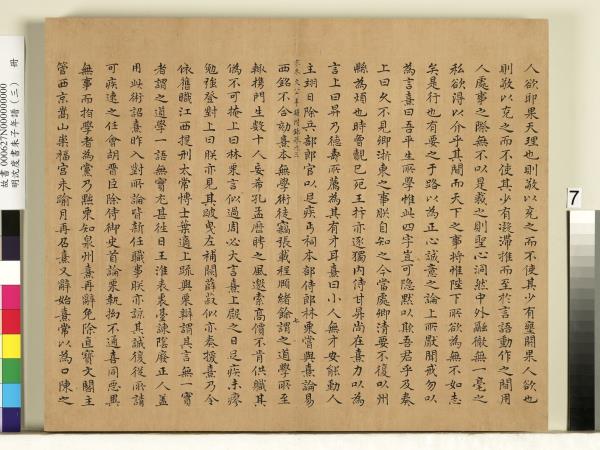 人欲耶果天理也則敬以充之而不使其少有壅閼果人欲也
則敬以克之而不使其少有凝滯推而至於言語動作之間用
人處事之際無不以是裁之則聖心洞然中外融徹無一毫之
私欲得以介乎其間而天下之事將惟陛下所欲為無不如志
矣是行也有要之于路以為正心誠意之論上所厭聞戒勿以
為言熹曰吾平生所學惟此四字豈可隱默以欺吾君乎及奏
上曰久不見卿浙東之事朕自知之今當處卿清要不復以州
縣為煩也時曾覿已死王抃亦逐獨內侍甘昇尚在熹力以為
言上曰昇乃德壽所薦為其有才耳熹曰小人無才安能動人
主翊日除兵部郎官以足疾丐祠本部侍郎林栗嘗與熹論易
西銘不合劾熹本無學術徒竊張載程頤緒餘謂之道學所至
輒攜門生數十人妄希孔孟歷聘之風邀索高價不肯供職其
偽不可掩上曰林栗言似過周必大言熹上殿之日足疾未瘳
勉強登對上曰朕亦見其跛曳左補闕薛叔似亦奏援熹乃令
依舊職江西提刑太常博士葉適上疏與栗辯謂其言無一實
者謂之道學一語無實尤甚往日王淮表裏臺諫陰廢正人蓋
用此術詔熹昨入對所論皆新任職事朕亦諒其誠復從所請
可疾速之任會胡晉臣除侍御史首論栗執拗不通喜同惡異
無事而指學者為黨乃黜栗知泉州熹再辭免除直寶文閣主
管西京嵩山崇福宮未踰月再召熹又辭始熹常以為口陳之
七
故書000627N000000000
明沈度書朱子年譜(三)
冊
7